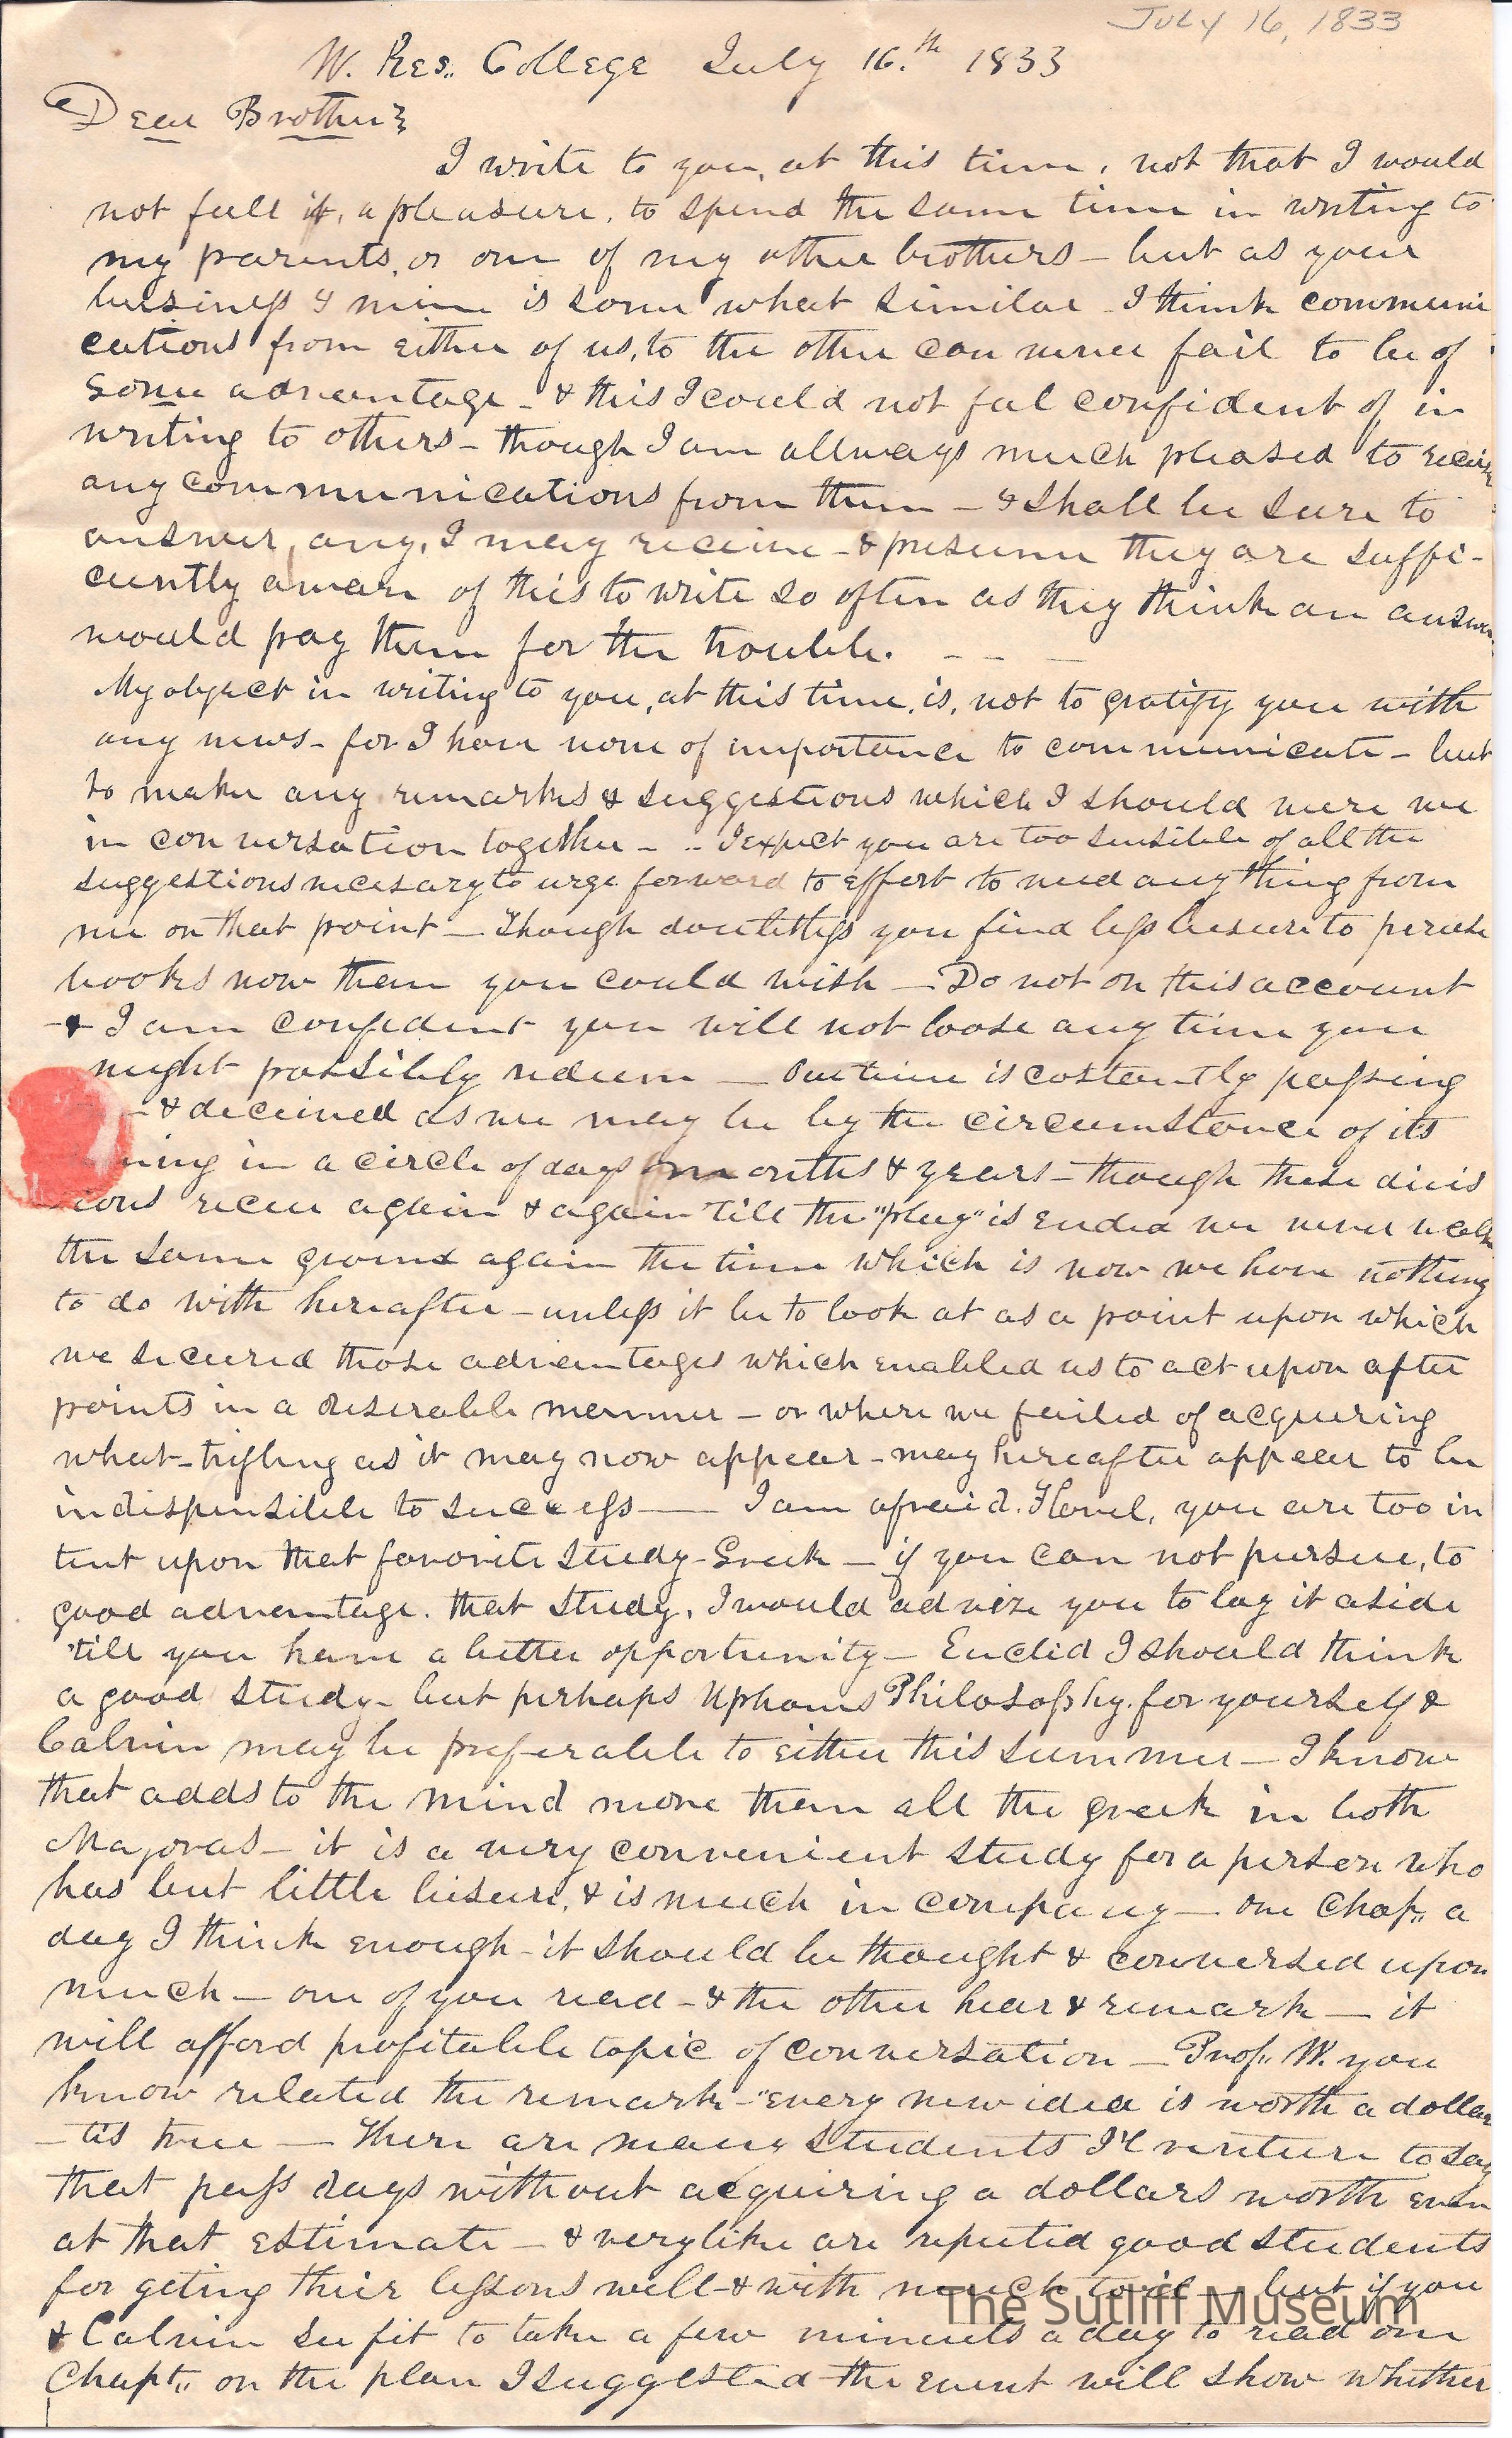 JULY 16, 1833
W. Res,, College July 16.th 1833
Dear Brother
I write to you, at this time, not that I would
not feel it, a pleasure, to spend the same time in writing to
my parents, or one of my other brothers – but as your
business & mine is some what similar I think communi
cations from either of us, to the other can never fail to be of
some advantage – & this I could not feel confident of in
writing to others – though I am allways much pleased to
any communications from them – & shall be sure to
answer, any, I may receive – & presume they are suffi-
ciently aware of this to write so often as they think an
would pay them for the trouble. – – –
My object in writing to you, at this time, is, not to gratify you with
any news – for I have none of importance to communicate – but
to make any remarks & suggestions which I should were we
in conversation together – .. I expect you are too sensible of all the
suggestions necesary to urge forward to effort to need any thing from
me on that point – Though doubtless you find less leisure to peruse
books now than you could wish – Do not on this account
– & I am confident you will not loose any time you
might possibly redeem – Our time is costantly passing
– & deceived as we may be by the circumstance of its
in a circle of days months & years – though these divis
ions recur again & again till the "play" is ended we never walk
the same ground again the time which is now we have nothing
to do with hereafter – unless it be to look at as a point upon which
we secured those advantages which enabled us to act upon after
points in a deserable manner – or where we failed of acquiring
what – trifling as it may now appear – may hereafter appear to be
indispensible to success — I am afraid. Flavel, you are too in
tent upon that favorite study – Greek – if you can not pursue, to
good advantage. that study, I would advize you to lay it aside
'till you have a better opportunity – Euclid I should think
a good study – but perhaps Uphams Philosophy. for yourself &
Calvin may be preferable to either this summer – I know
that adds to the mind more than all the greek in both
Majoras – it is a very convenient study for a person who
has but little leisure, & is much in company – one Chap,, a
day I think enough – it should be thought & conversed upon
much – one of you read – & the other hear & remark – it
will afford profitable topic of conversation – Prof,, W. you
know related the remark – "every new idea is worth a dollar
– tis true – There are many students I'l venture to say
that pass days without acquiring a dollars worth even
at that estimate – & very like are reputed good students
for geting their lessons well – & with much toil – but if you
& Calvin see fit to take a few minuts a day to read one
Chapt,, on the plan I suggested the event will show whether
The Sutliff Museum